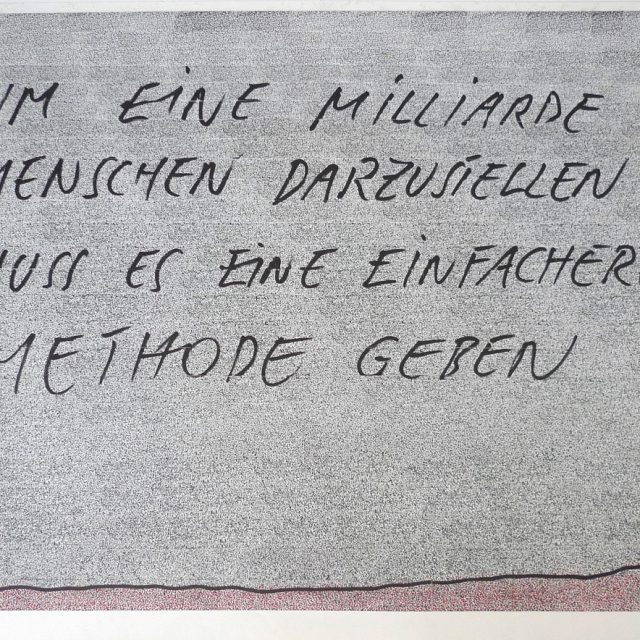 UM EINE MILLIARDE
MENSCHEN DARZUSTELLEN
MUSS ES EINE EINFACHERE
METHODE GEBEN